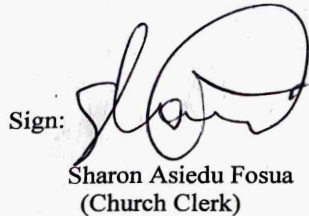 Sign:
Sharon Asiedu Fosua
(Church Clerk)